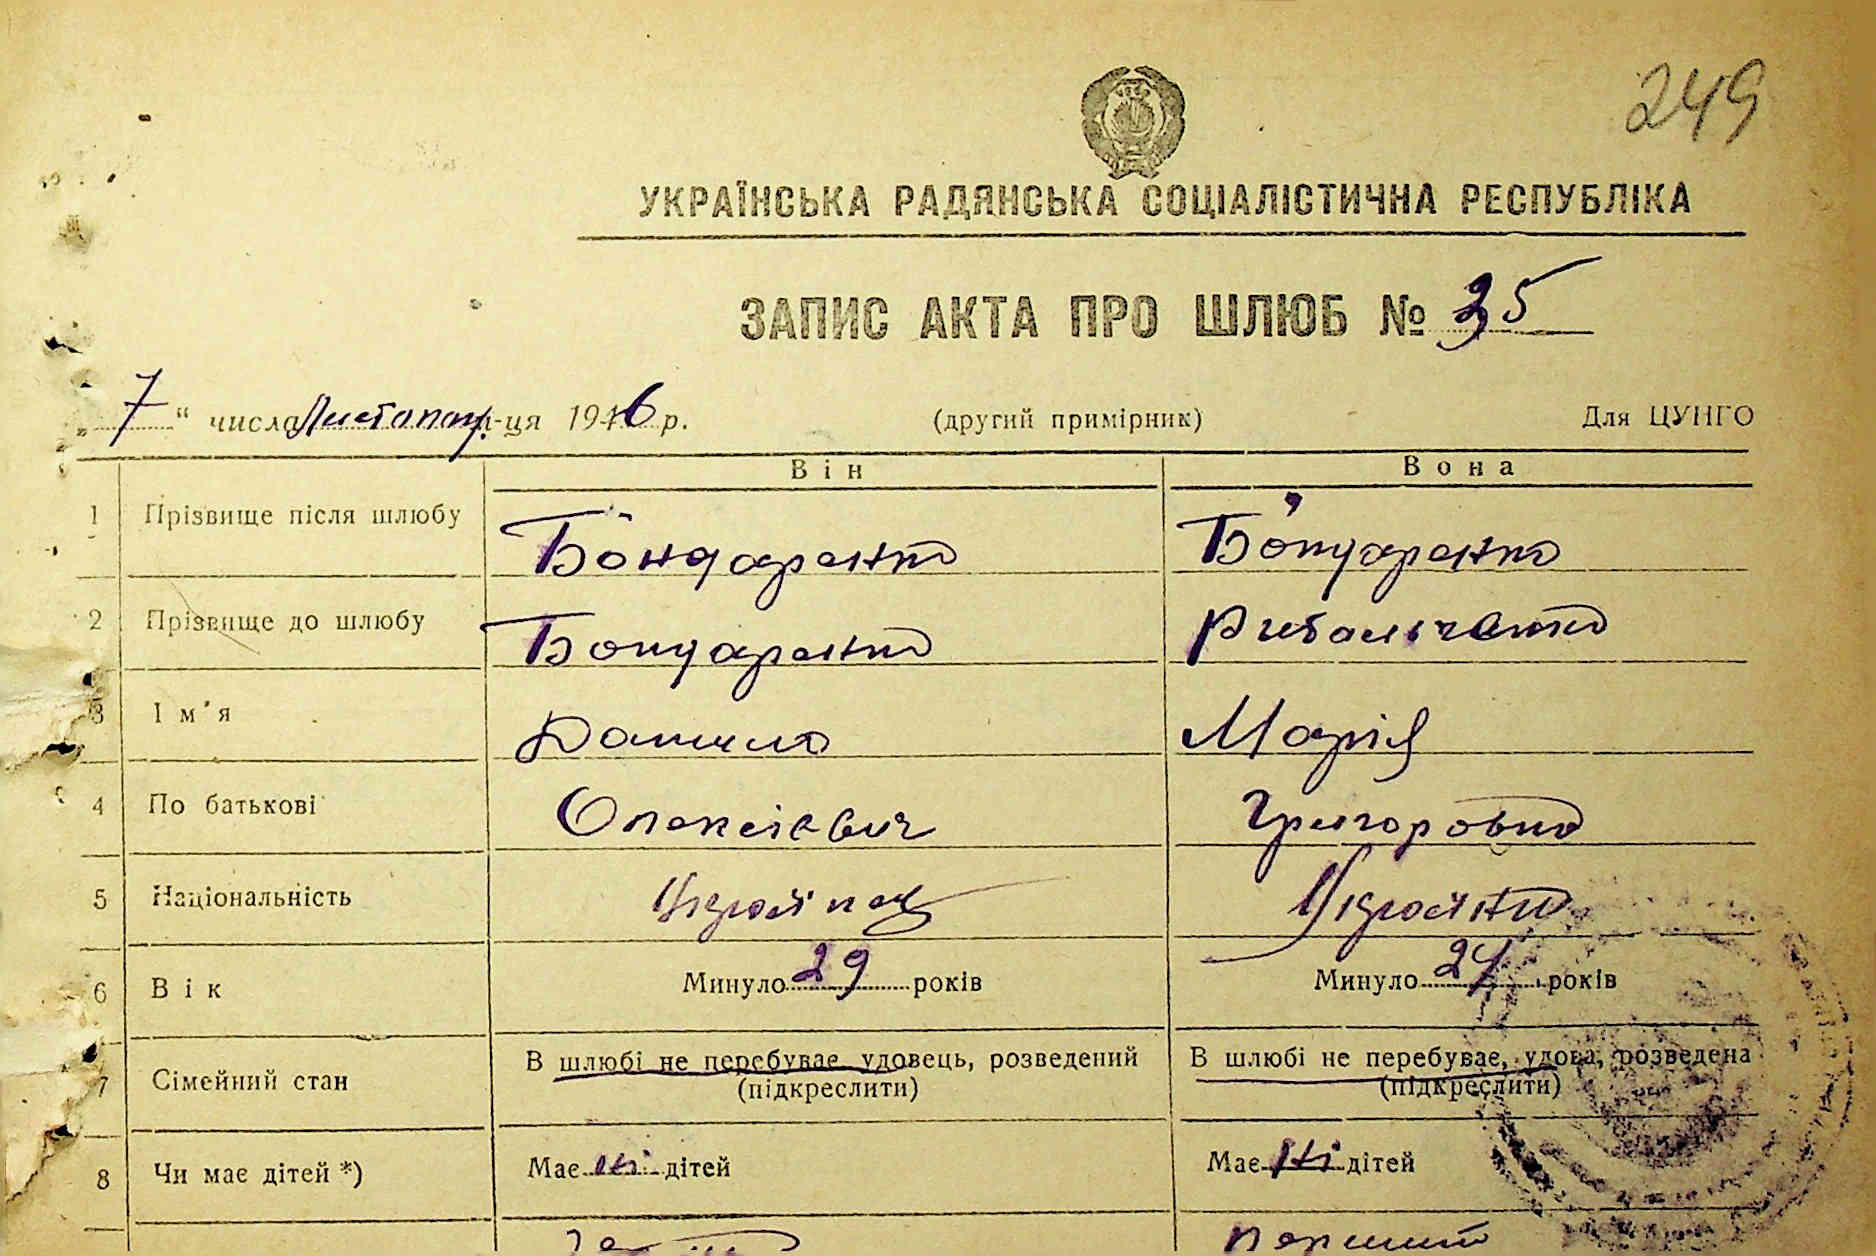 249
УКРАЇНСЬКА РАДЯНСЬКА СОЦІАЛІСТИЧНА РЕСПУБЛІКА
ЗАПИС АКТА ПРО ШЛЮБ № 35
„ 7 “ числа Листопад м-ця 1946 р. (другий примірник) Для ЦУНГО
Він Вона
1 Прізвище після шлюбу Бондаренко Бондаренко
2 Прізвище до шлюбу Бондаренко Рибальченко
3 Ім'я Данило Марія
4 По батькові Олексієвич Григоровна
5 Національність Українец Українка
6 Вік Минуло 29 років Минуло 24 років
7 Сімейний стан В шлюбі не перебуває, удовець, розведений В шлюбі не перебуває, удова, розведена
(підкреслити) (підкреслити)
8 Чи має дітей *) Має ні дітей Має ні дітей